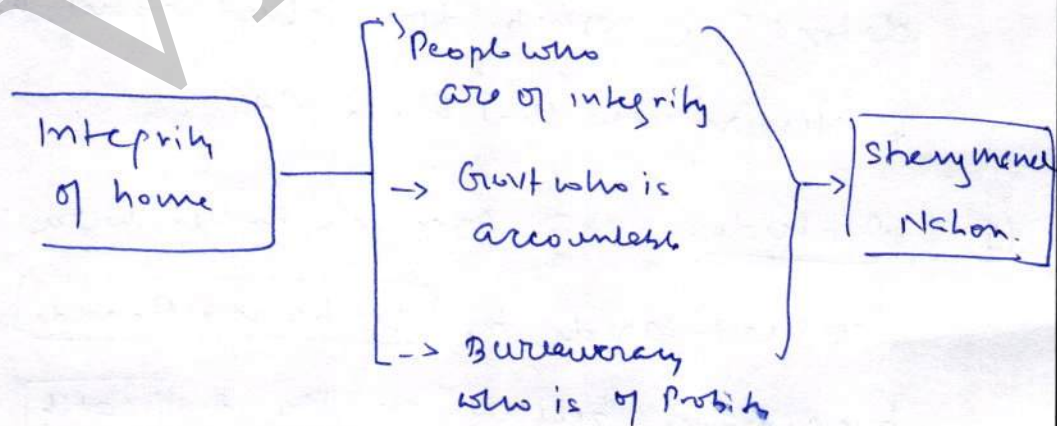 Integrity
of home
People who
are of integrity
-> Govt who is
accountable
-> Bureaucracy
who is of Probity
Nation.